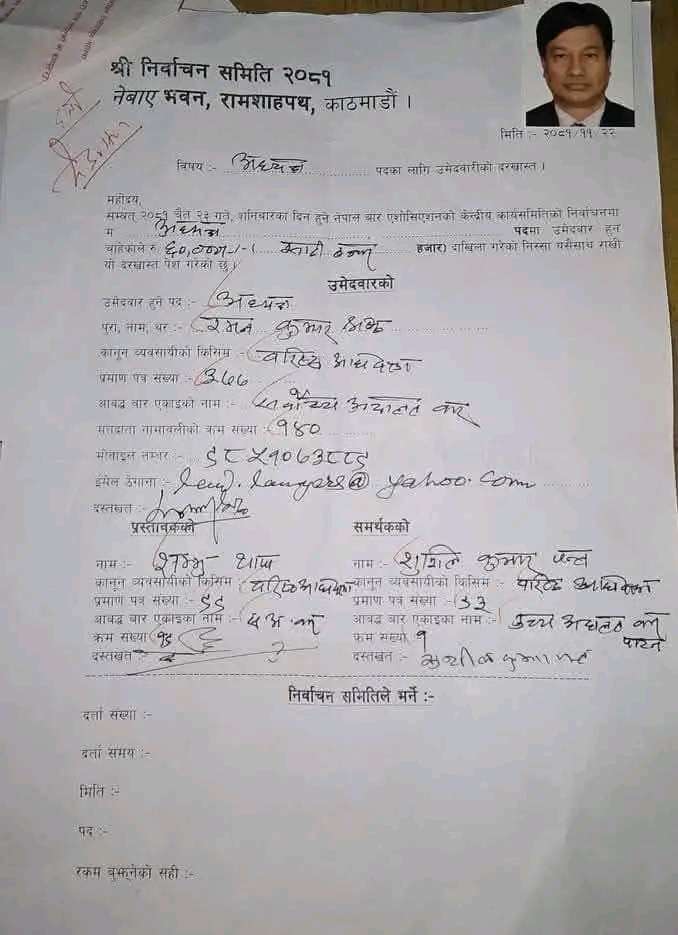 श्री निर्वाचन समिति २०८१
नेबाए भवन, रामशाहपथ, काठमाडौं ।
मिति :- २०८१/११/२२
विषय :- अध्यक्ष पदका लागि उमेदवारीको दरखास्त ।
महोदय,
सम्वत् २०८१ चैत २३ गते, शनिबारका दिन हुने नेपाल बार एशोसिएशनको केन्द्रीय कार्यसमितिको निर्वाचनमा
म अध्यक्ष पदमा उमेदवार हुन
चाहेकाले रु ६०,०००।-। (साठी हजार) दाखिला गरेको निस्सा यसैसाथ राखी
यो दरखास्त पेश गरेको छु।
उमेदवारको
उमेदवार हुने पद :- अध्यक्ष
पुरा, नाम, थर :- रमन कुमार श्रेष्ठ
कानून व्यवसायीको किसिम :- वरिष्ठ अधिवक्ता
प्रमाण पत्र संख्या :- ३७७
आबद्ध बार एकाइको नाम :- सर्वोच्च अदालत बार
मतदाता नामावलीको क्रम संख्या :- १४०
मोबाइल नम्बर :- ९८५१०७३८८९
ईमेल ठेगाना :- lawyers@yahoo.com
दस्तखत :-
प्रस्तावकको समर्थकको
नाम :- शम्भु थापा नाम :- शुशिल कुमार पन्त
कानून व्यवसायीको किसिम :- वरिष्ठ अधिवक्ता कानून व्यवसायीको किसिम :- वरिष्ठ अधिवक्ता
प्रमाण पत्र संख्या :- ९९ प्रमाण पत्र संख्या :- ३२
आबद्ध बार एकाइको नाम :- स.अ. बार आबद्ध बार एकाइको नाम :- उच्च अदालत बार
पाटन
क्रम संख्या क्रम संख्या १
दस्तखत :- दस्तखत :-
निर्वाचन समितिले भर्ने :-
दर्ता संख्या :-
दर्ता समय :-
मिति :-
पद :-
रकम बुझ्नेको सही :-